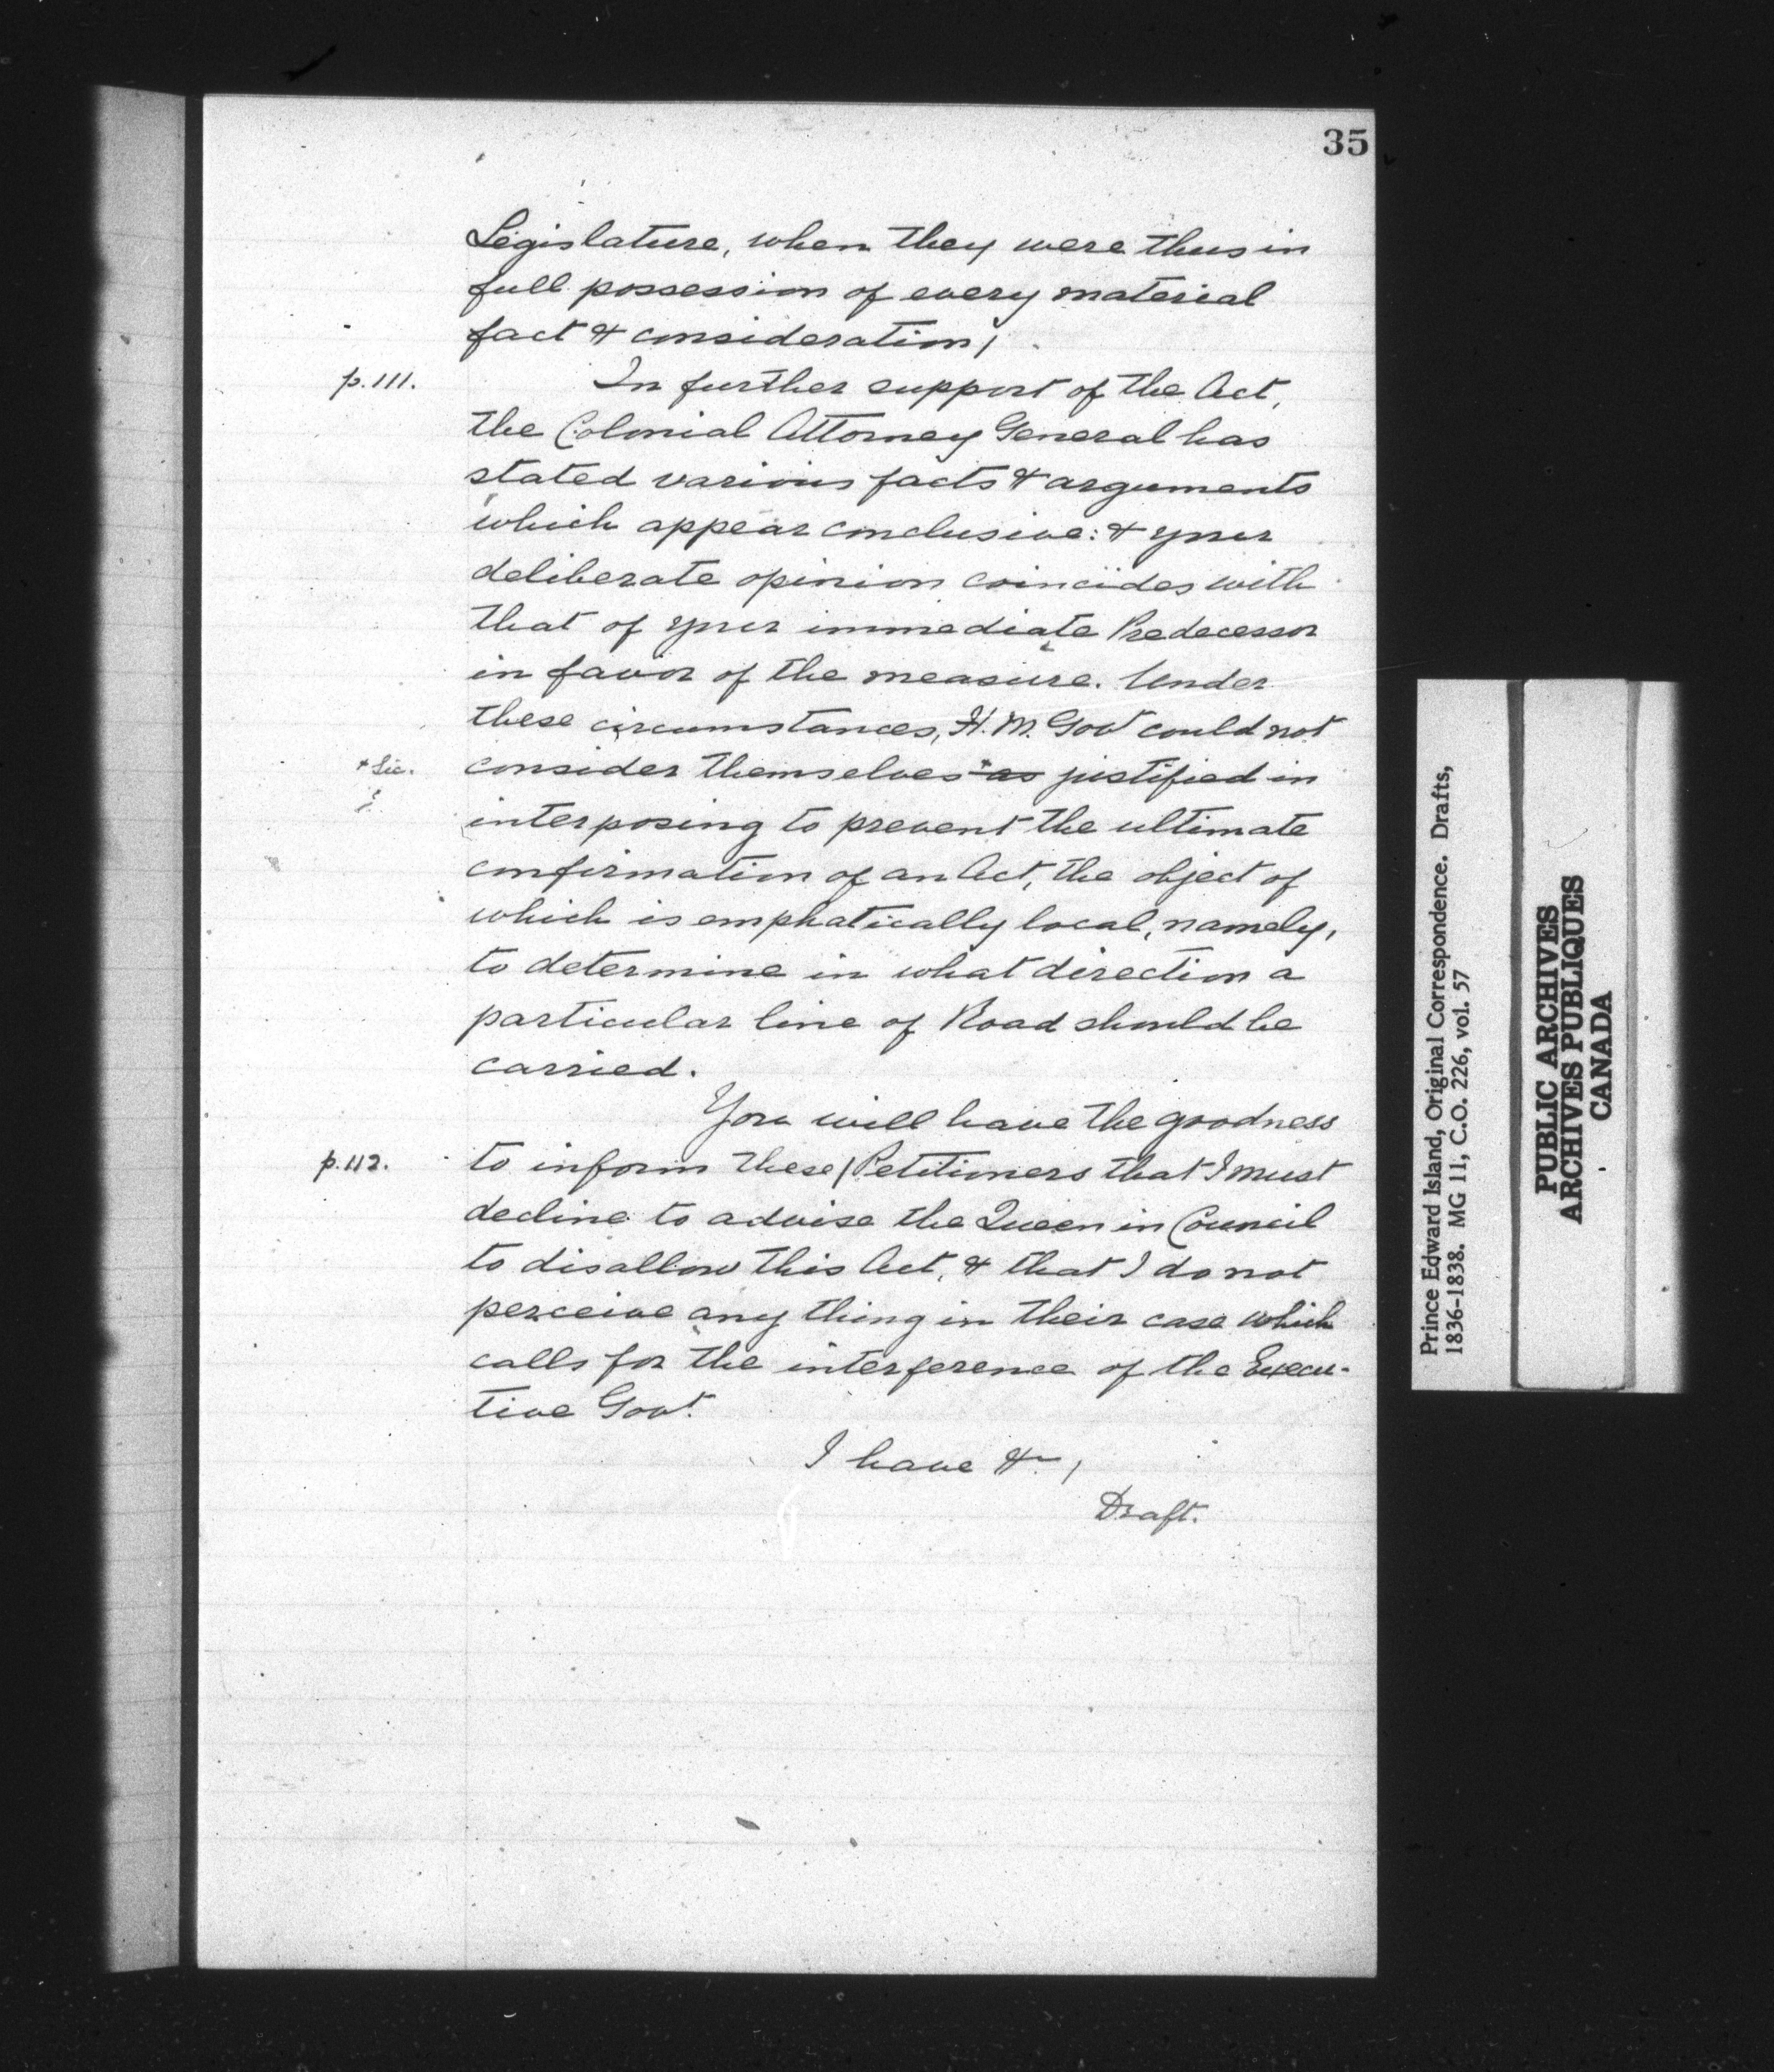 35
Legislature, when they were thus in
full possession of every material
fact & consideration /
p. 111.
In further support of the Act,
the Colonial Attorney General has
stated various facts & arguments
which appear conclusive: & your
deliberate opinion coincides with
that of your immediate Predecessor
in favor of the measure. Under
these circumstances, H. M. Govt could not
+ Sic.
consider themselves + as justified in
interposing to prevent the ultimate
confirmation of an Act, the object of
which is emphatically local, namely,
to determine in what direction a
particular line of Road should be
carried.
You will have the goodness
p. 112.
to inform these / Petitioners that I must
decline to advise the Queen in Council
to disallow this Act, & that I do not
perceive any thing in their case which
calls for the interference of the Execu-
tive Govt.
I have &c /
Draft.
Prince Edward Island, Original Correspondence. Drafts,
1836-1838. MG 11, C.O. 226, vol. 57
PUBLIC ARCHIVES
ARCHIVES PUBLIQUES
CANADA